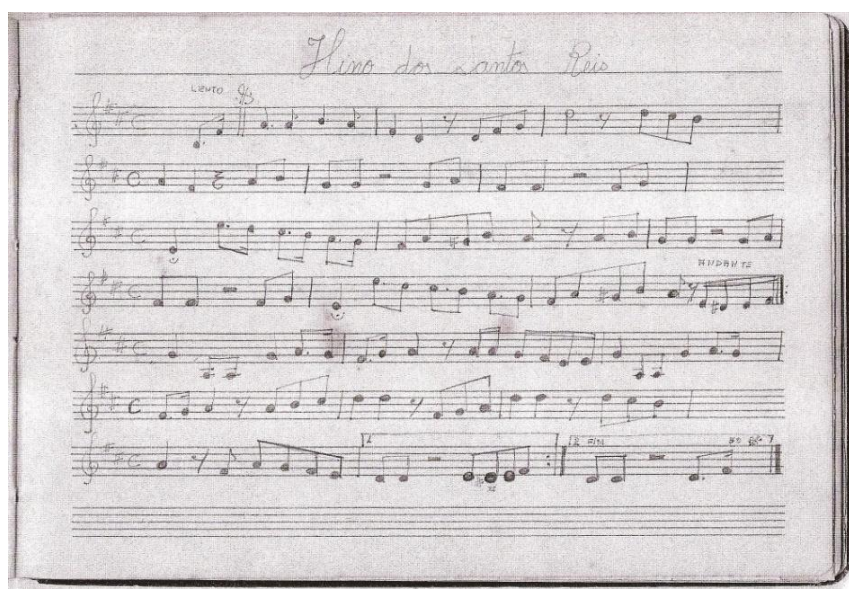 Hino dos Santos Reis
LENTO
ANDANTE
1
2 FIM